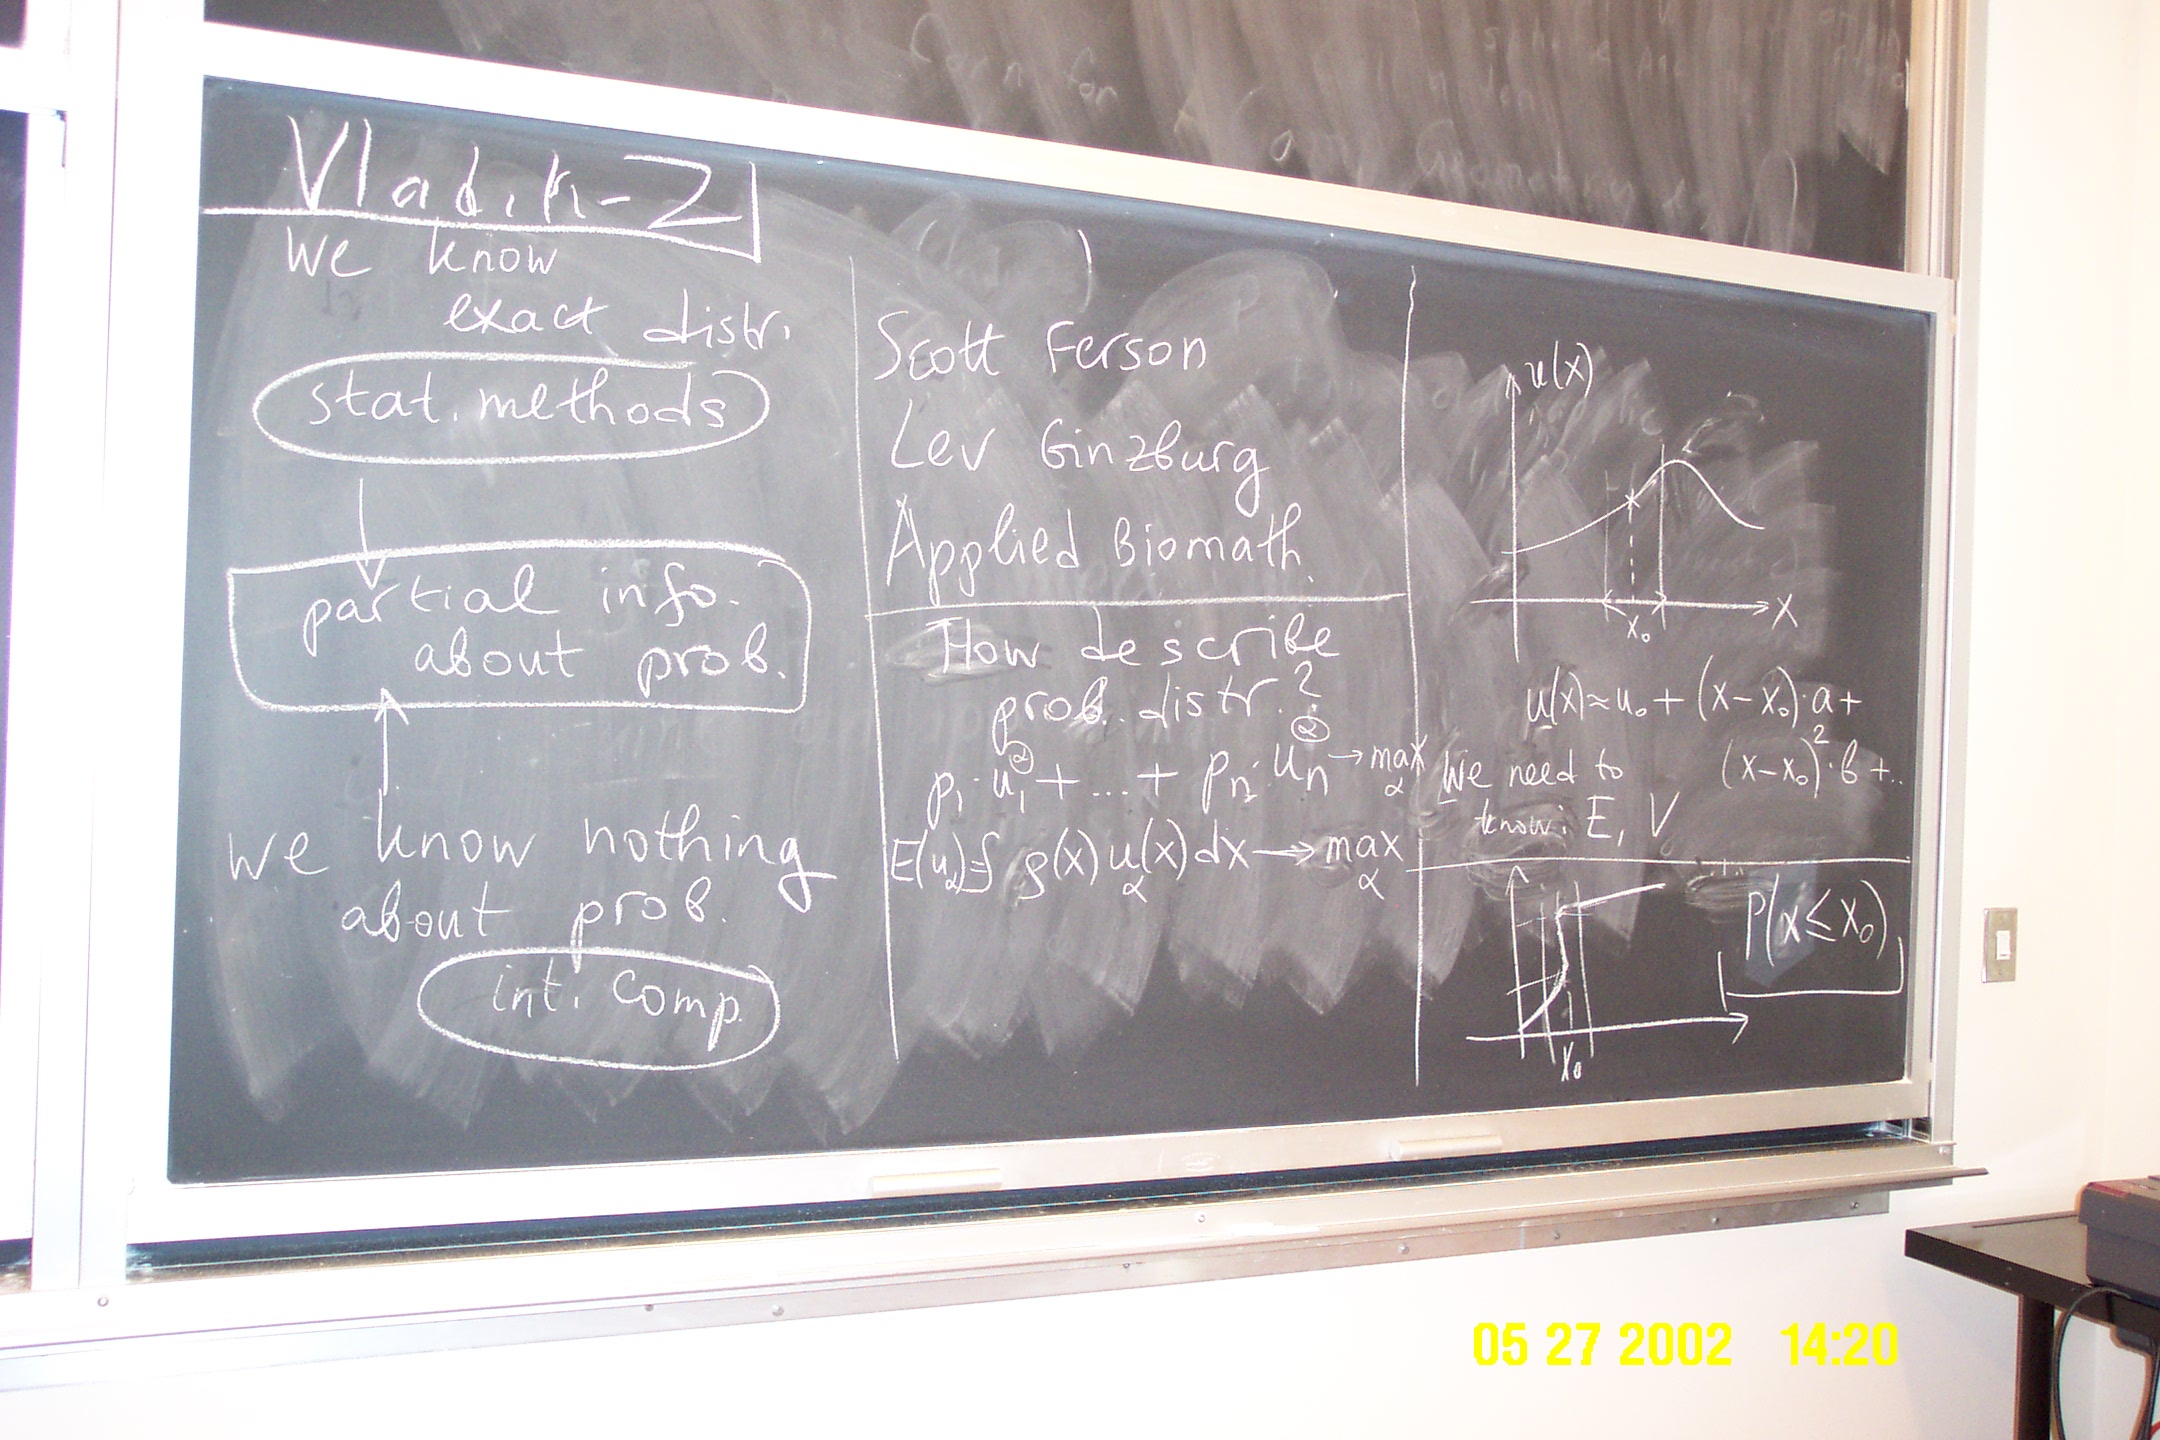 Vladik-2
We know
exact distr.
stat. methods
partial info.
about prob.
we know nothing
about prob.
int. comp.
Scott Ferson
Lev Ginzburg
Applied Biomath.
How describe
prob. distr.?
p₁·u₁^α + ... + pₙ·uₙ^α → max α
E(u_α)=∫ρ(x)u_α(x)dx → max α
u(x)
x₀
x
u(x)≈u₀+(x-x₀)·a+
(x-x₀)²·b+..
We need to
know: E, V
P(x≤x₀)
x₀
05 27 2002 14:20